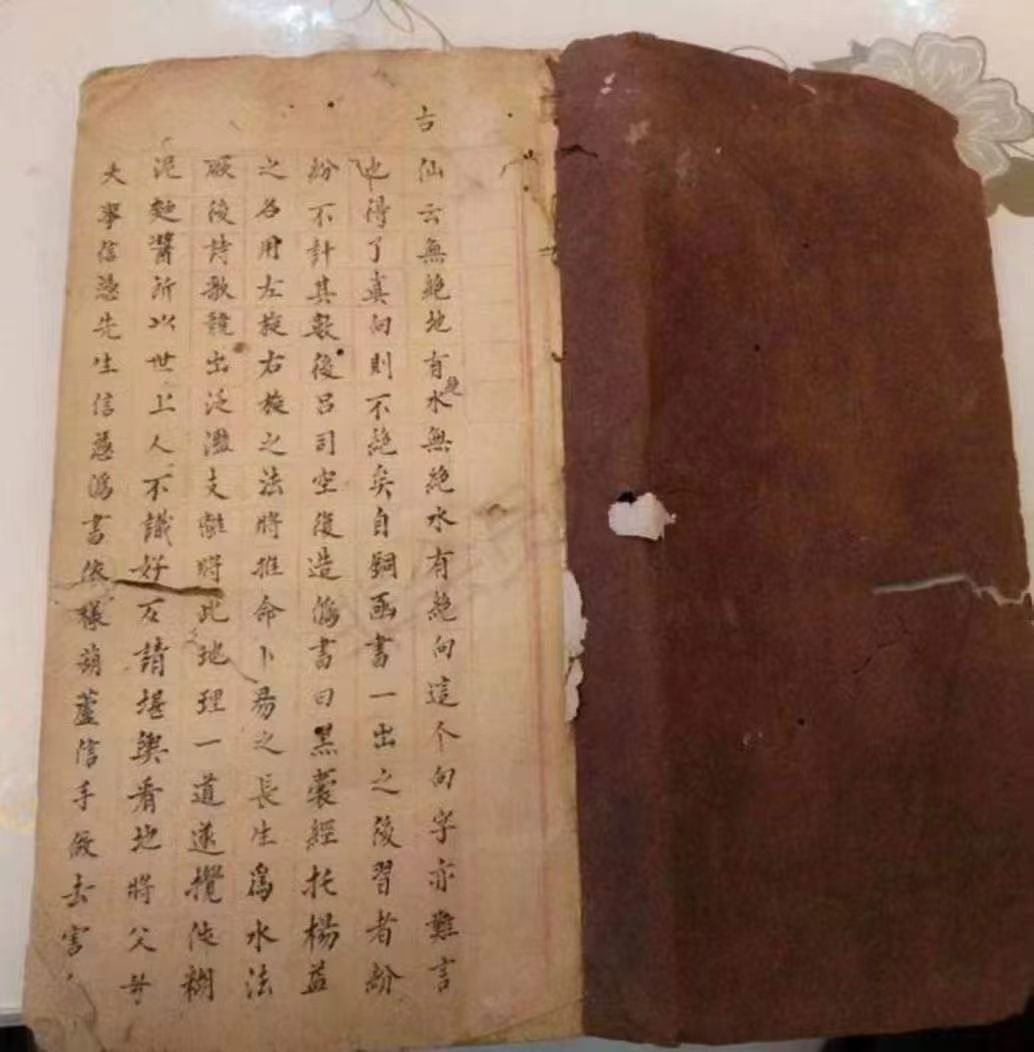 古仙云無絶地有水無絶水有絶向這个向字亦難言
也得了真向則不絶矣自銅函書一出之後習者紛
紛不計其數後呂司空復造僞書曰黑囊經托楊益
之名用左旋右旋之法將推命卜易之長生爲水法
厥後詩歌競出泛濫支離將此地理一道遂攪作糊
泥麵醬所以世上人不識好歹請堪輿看地將父母
大事信慿先生信慿僞書依樣葫蘆信手做去害